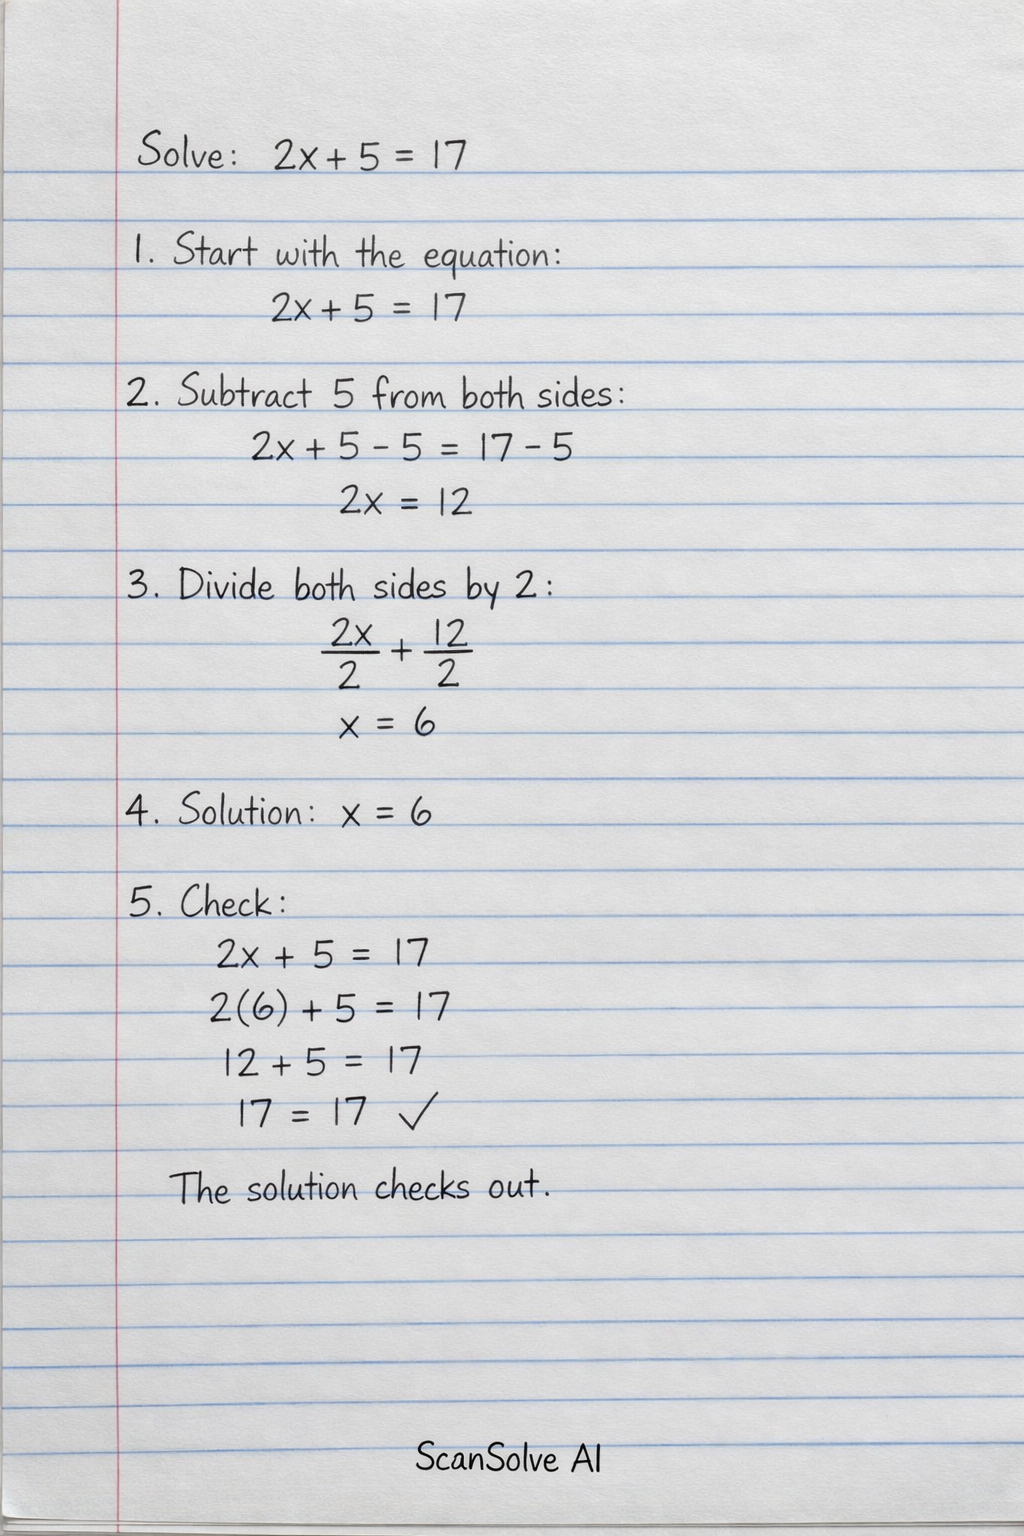 Solve: 2x + 5 = 17
1. Start with the equation:
2x + 5 = 17
2. Subtract 5 from both sides:
2x + 5 - 5 = 17 - 5
2x = 12
3. Divide both sides by 2:
2x/2 + 12/2
x = 6
4. Solution: x = 6
5. Check:
2x + 5 = 17
2(6) + 5 = 17
12 + 5 = 17
17 = 17 ✓
The solution checks out.
ScanSolve AI